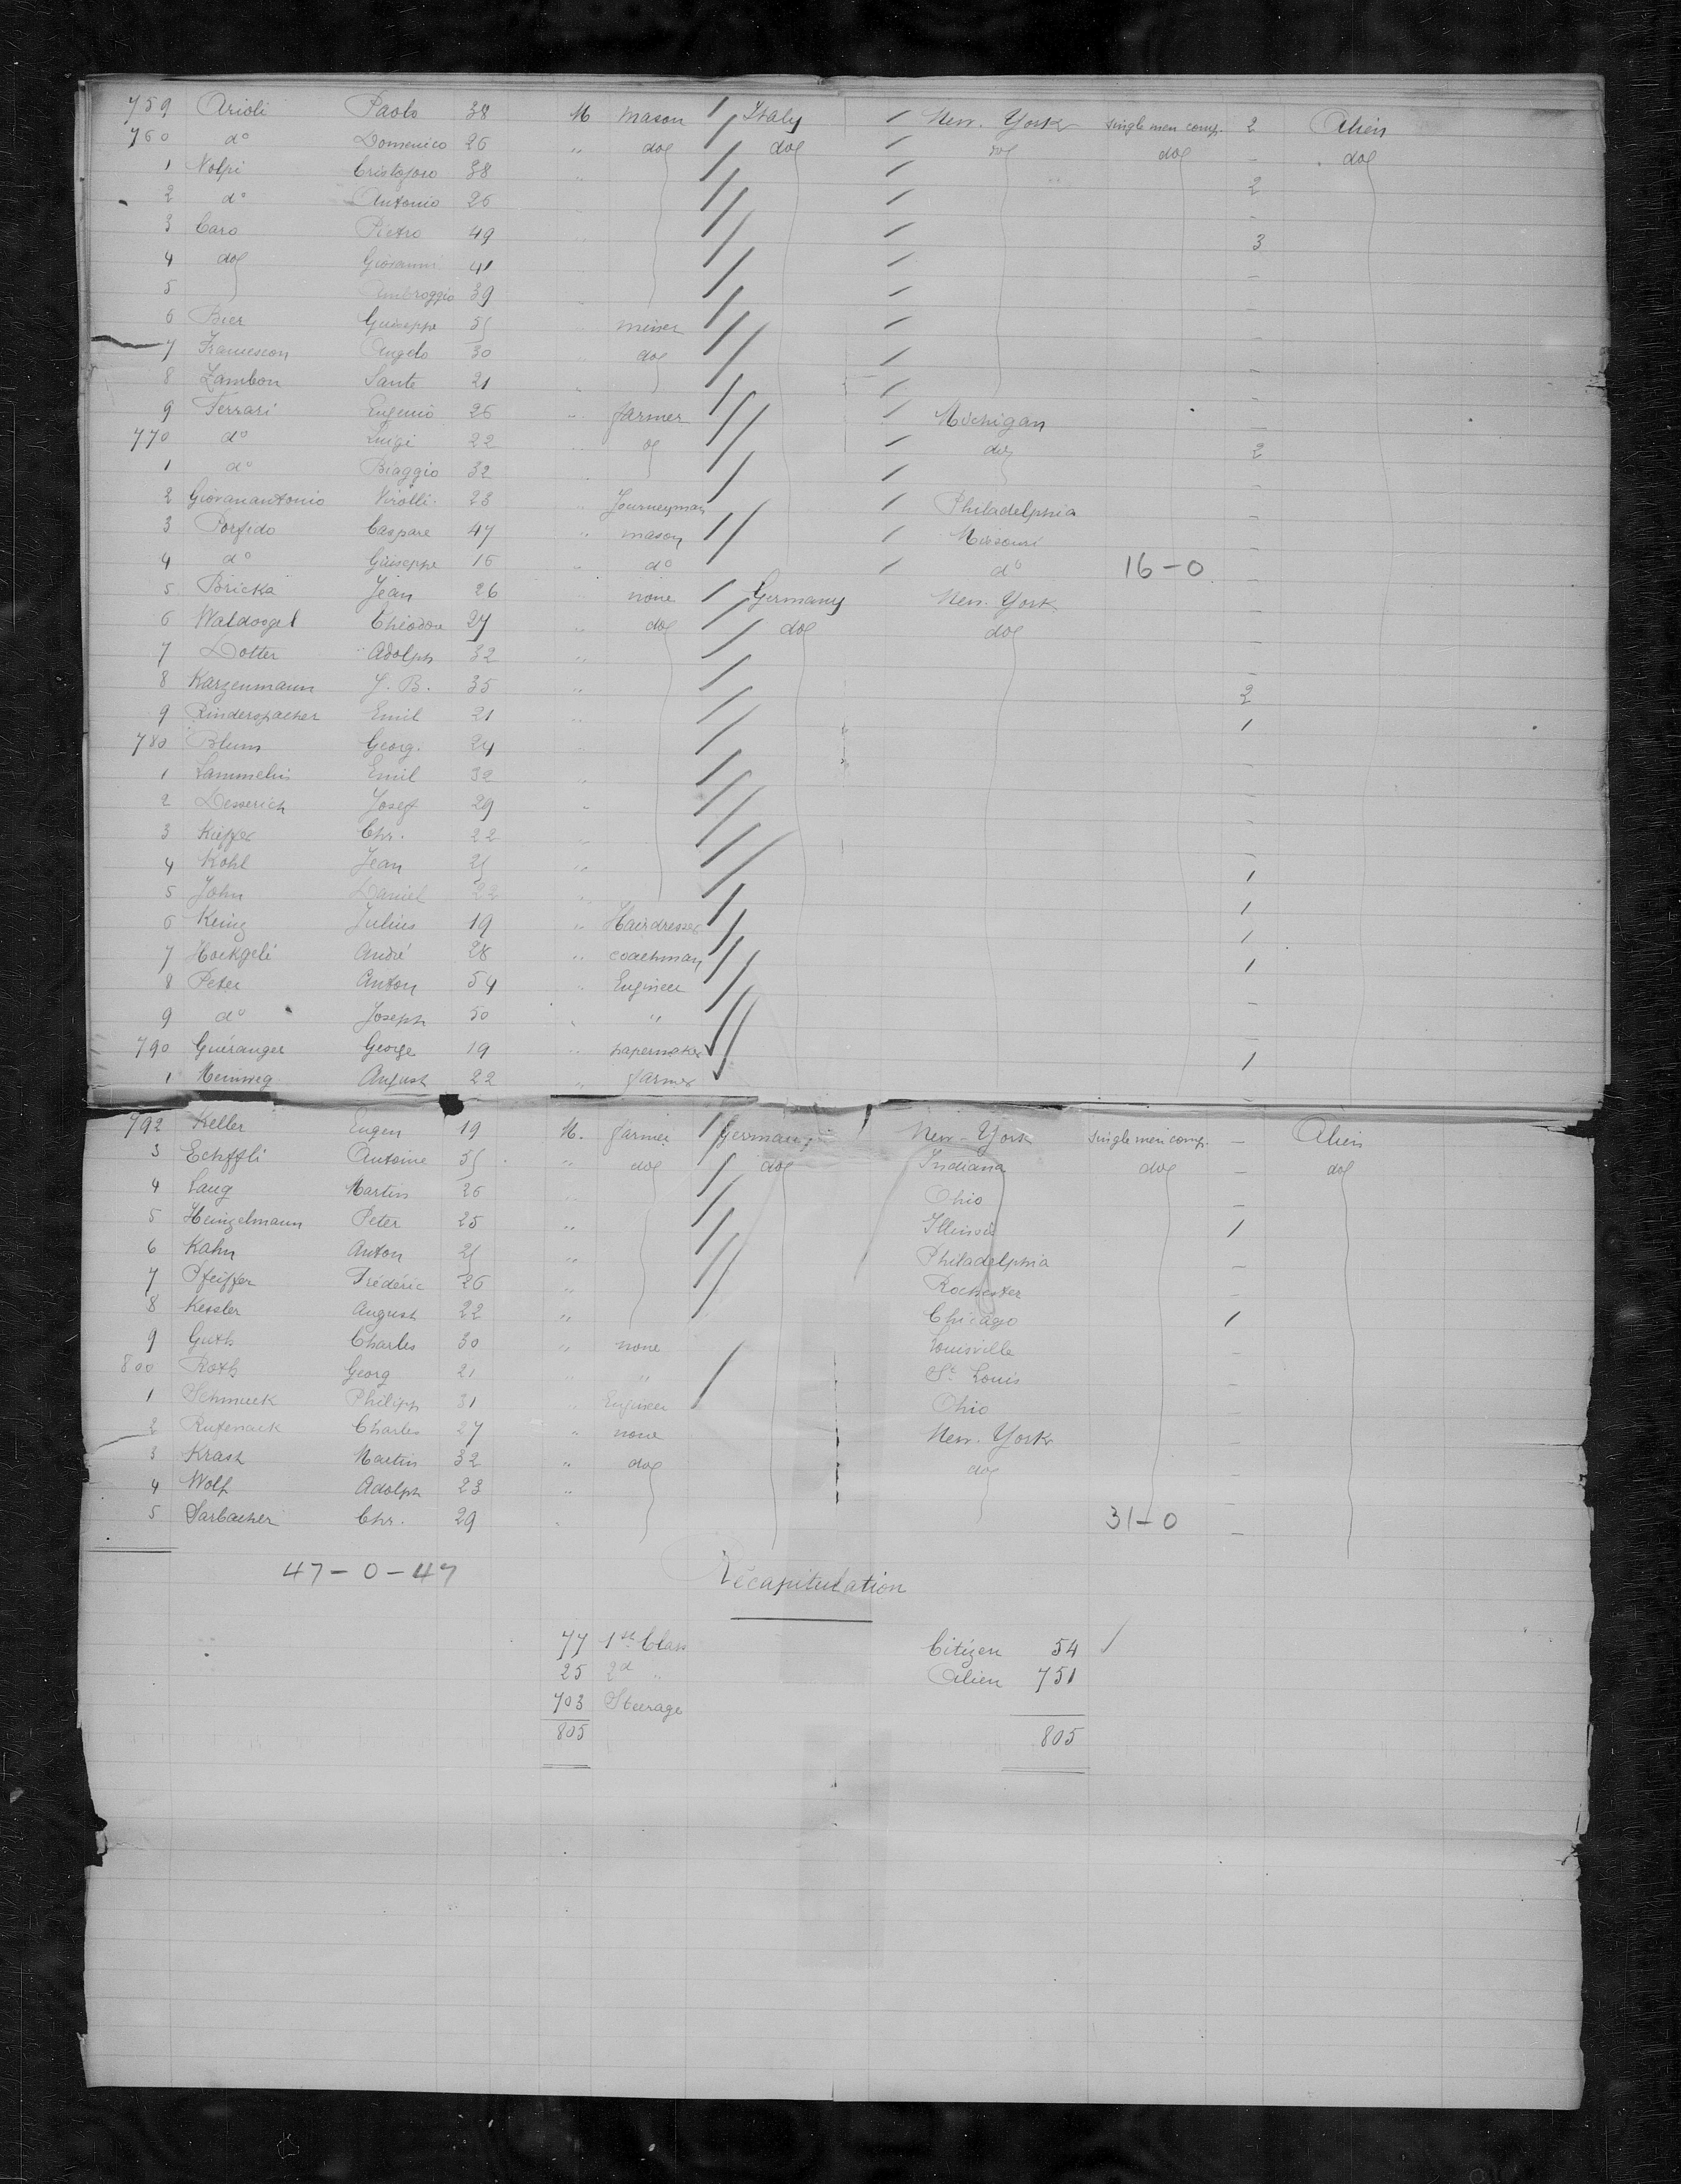 759 Arioli Paolo 38 M mason Italy New. York single men comp. 2 Alien
760 do Domenico 26 " do do do do - do
1 Volpi Cristoforo 38 " 2
2 do Antonio 26 -
3 Caro Pietro 49 3
4 do Giovanni 41 -
5 Ambroggio 39 -
6 Bier Guiseppe miner -
7 Angelo 30 do -
8 Zambon Sante 21 " -
9 Ferrari Eugenio 26 " farmer Michigan -
770 do Luigi 22 do do 2
1 do Biaggio 32 -
2 Giovanantonio Virolli. 23 " Journeyman Philadelphia -
3 Porfido Caspare 47 " mason Missouri -
4 do Guiseppe 16 " do do 16-0 -
5 Bricka Jean 26 " none Germany New. York -
6 Waldvogel Théodore 27 " do do do -
7 Dotter Adolph 32 " -
8 Karzenmann J. B. 35 " 2
9 Rinderspacher Emil 21 " 1
780 Blum Georg. 24 -
1 Emil 32 " -
2 Desserich Josef 29 " -
3 Kieffer Chr. 22 " -
4 Kohl Jean " 1
5 John Daniel 22 " 1
6 Julius 19 " Hairdresser 1
7 André 28 " coachman 1
8 Peter Anton 54 " Engineer -
9 do Joseph 50 " " -
790 Guéranger George 19 " papermaker 1
1 August 22 " farmer -
792 Keller Eugen 19 M. farmer Germany New-York single men comp. - Alien
3 Antoine " do do Indiana do - do
4 Lang Martin 26 " Ohio -
5 Heinzelmann Peter 25 " Illinois 1
6 Kahn Anton " Philadelphia -
7 Pfeiffer Frédéric 26 " Rochester -
8 Kessler August 22 " Chicago 1
9 Guth Charles 30 " none Louisville -
800 Roth Georg 21 " " St. Louis -
1 Schmuck Philipp 31 " Engineer Ohio
2 Charles 27 " none New. York -
3 Martin 32 " do do -
4 Wolf Adolph 23 " -
5 Sarbacher Chr. 29 " 31-0 -
47-0-47
Récapitulation
77 1st Class Citizen 54
25 2d " Alien 751
703 Steerage
805 805